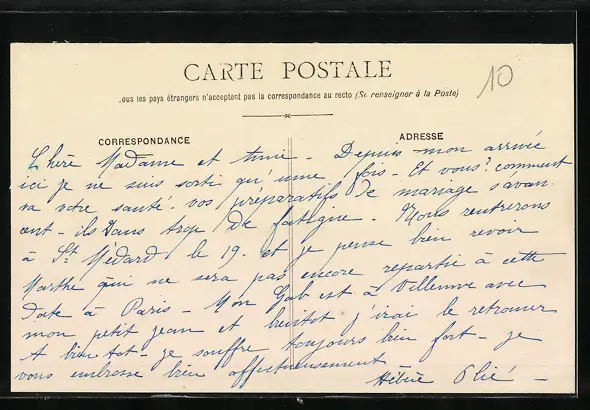 CARTE POSTALE
10
ous les pays étrangers n'acceptent pas la correspondance au recto (Se renseigner à la Poste)
CORRESPONDANCE
ADRESSE
Chère Madame et Amie - Depuis mon arrivée
ici je ne suis sorti qu'une fois - Et vous? comment
va votre santé. vos préparatifs de mariage s'avan
cent - ils sans trop de fatigue. Nous rentrerons
à St Médard le 19. et je pense bien revoir
Marthe qui ne sera pas encore repartie à cette
date à Paris - Mon Gab est à Villeneuve avec
mon petit jean et bientôt j'irai le retrouver
A bientot - je souffre toujours bien fort - je
vous embrasse bien affectueusement